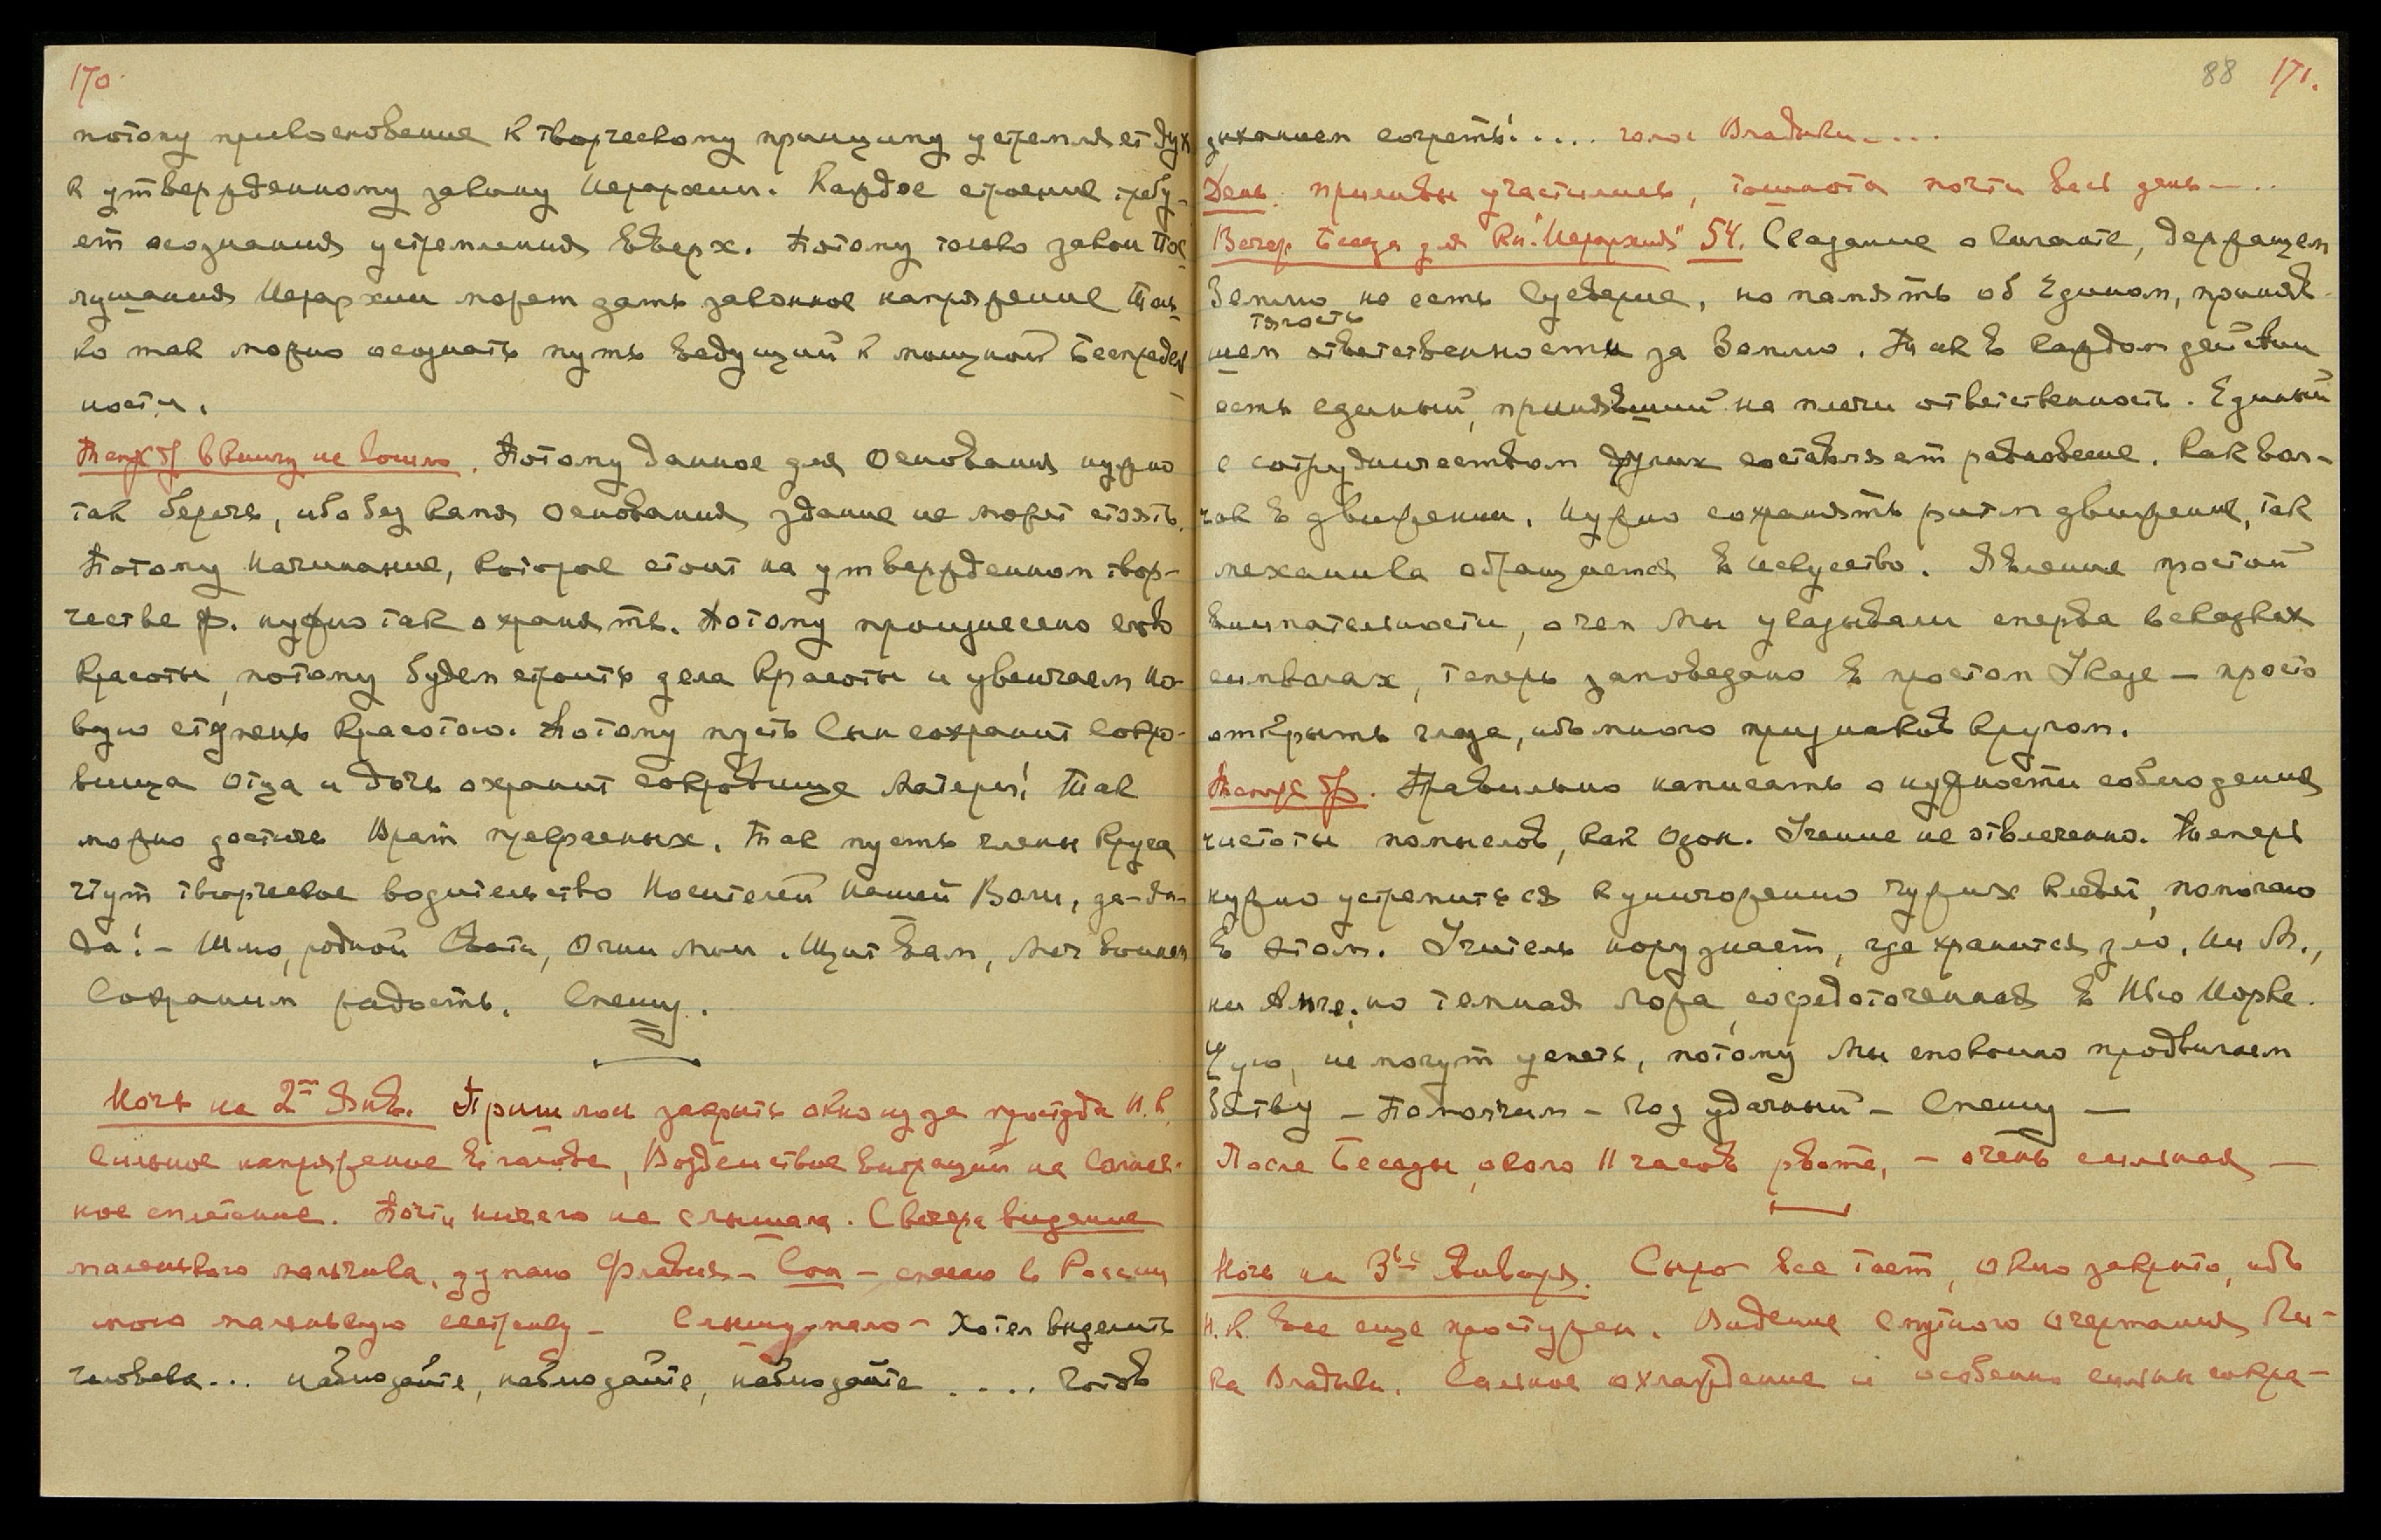 170.
потому прикосновение к творческому принципу устремляет дух
к утвержденному закону Иерархии. Каждое строение требу-
ет осознания устремления вверх. Потому только закон Пос-
лушания Иерархии может дать законное напряжение Толь-
ко так можно осознать путь ведущий к мощной Беспредель-
ности.
в книгу не вошло. Потому данное для Основания нужно
так беречь, ибо без камня Основания здание не может стоять.
Потому Начинание, которое стоит на утвержденном твор-
честве ф. нужно так охранять. Потому произнесено слово
Красоты, потому будем строить дела Красоты и увенчаем но-
вую ступень Красотою. Потому пусть Сын сохранит Сокро-
вища Отца и дочь охранит сокровище Матери! Так
можно достичь Врат прекрасных. Так пусть члены Круга
чтут творческое водительство Носителей Нашей Воли, да-да-
да! – Шлю, родной Свати, Огни Мои. Щит вам, Меч воинам
Сохраним радость. Спешу.
Ночь на 2ое Янв. Пришлось закрыть окно из за простуды Н.К.
Сильное напряжение в голове, Воздействие вибраций на Солнеч-
ное сплетение. Почти ничего не слышала. С вечера видение
маленького мальчика, думаю Флавия – Сон – спасаю в России
мою маленькую сестренку – Слышу мало – Хотел выделить
человека... наблюдайте, наблюдайте, наблюдайте .... Готов
88 171.
дыханием согреть!.... голос Владыки....
День. приливы участились, тошнота почти весь день –..
Вечер. Беседа для Кн. "Иерархия" 54. Сказание о Гиганте, держащем
Землю не есть Суеверие, но память об Едином, приняв-
тягость
шем ответственности за Землю. Так в каждом действии
есть единый, принявший на плечи ответственность. Единый
с сотрудничеством других составляет равновесие. Как вол-
чок в движении. Нужно сохранять ритм движения, так
механика обращается в искусство. Явление простой
внимательности, о чем Мы указывали сперва в сказках
символах, теперь заповедано в простом Указе – просто
открыть глаза, ибо много признаков кругом.
Правильно написать о нужности соблюдения
чистоты помыслов, как Озон. Учение не отвлеченно. Теперь
нужно устремиться к уничтожению чужих клевет, помогаю
в этом. Учитель Нору знает, где хранится зло. Ни М.,
ни Анге, но темная ложа, сосредоточенная в Нью Иорке.
Чую, не могут успеть, потому Мы спокойно продвигаем
битву – Помолчим – Год удачный – Спешу –
После Беседы, около 11 часов рвота, – очень сильная –
Ночь на 3ье Января. Сыро все тает, окно закрыто, ибо
Н.К. все еще простужен. Видение смутного очертания Ли-
ка Владыки. Сильное охлаждение и особенно сильны сокра-